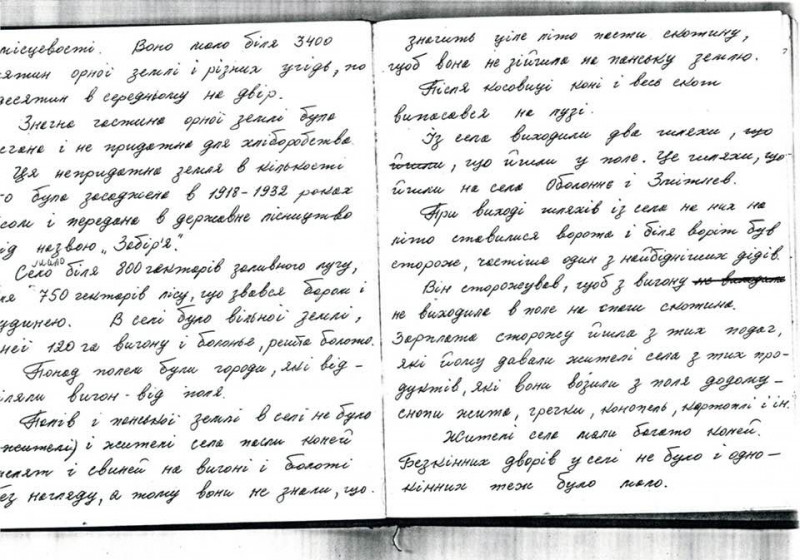 місцевості. Воно мало біля 3400
сятин орної землі і різних угідь, по
десятин в середньому на двір.
Значна частина орної землі була
і не придатна для хліборобства.
Ця непридатна земля в кількості
го була засаджена в 1918-1932 роках
сом і передана в державне лісництво
під назвою „Забір'я".
Село мало біля 800 гектарів заливного лугу,
ля 750 гектарів лісу, що звався бором і
удинею. В селі було вільної землі,
неї 120 га вигону і болоньє, решта болото.
Понад полем були городи, які від-
іляли вигон від поля.
Попів і панської землі в селі не було
жителі) і жителі села пасли коней
телят і свиней на вигоні і болоті
без нагляду, а тому вони не знали, що
значить ціле літо пасти скотину,
щоб вона не зійшла на панську землю.
Після косовиці коні і весь скот
випасався на лузі.
Із села виходили два шляхи, що
йшли, що йшли у поле. Це шляхи, що
йшли на села Оболоннє і Зміїтнєв.
При виході шляхів із села на них на
літо ставилися ворота і біля воріт був
сторож, частіше один з найбідніших дідів.
Він сторожував, щоб з вигону не виходила
не виходила в поле на спаш скотина.
Зарплата сторожу йшла з тих подач,
які йому давали жителі села з тих про-
дуктів, які вони возили з поля додому -
снопи жита, гречки, конопель, картоплі і ін.
Жителі села мали багато коней.
Безкінних дворів у селі не було і одно-
кінних теж було мало.